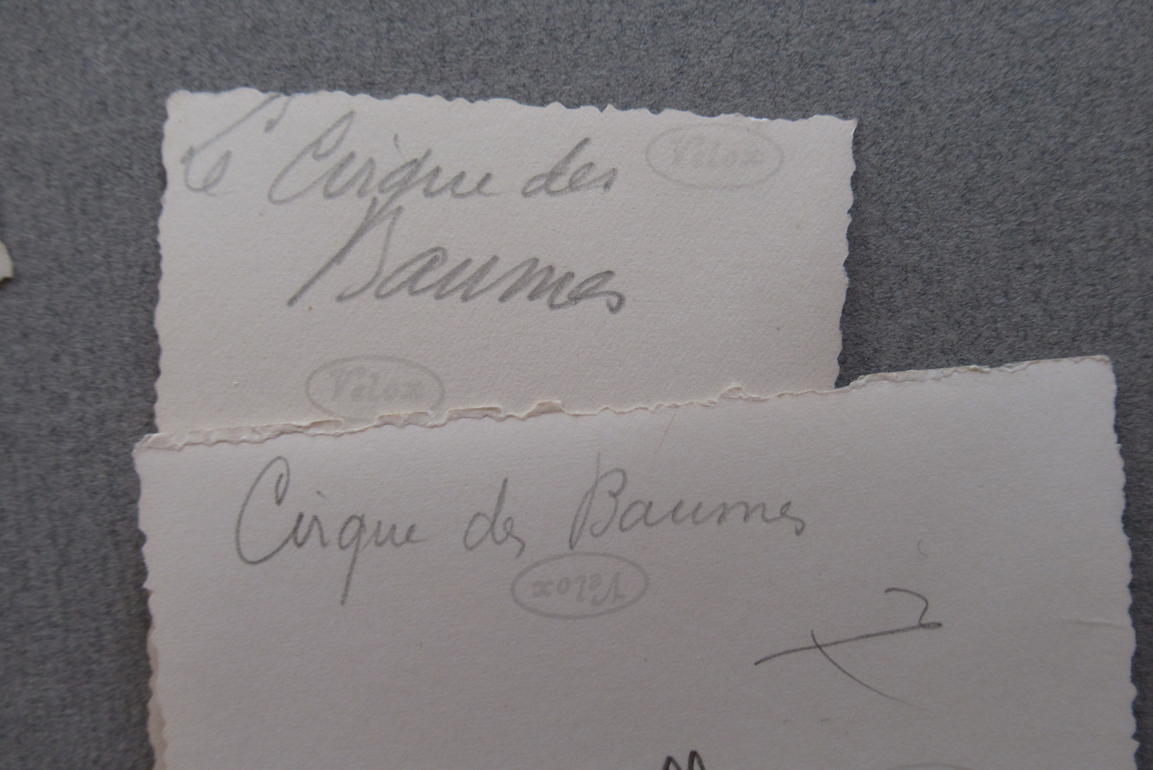 Le Cirque des
Velox
Baumes
Velox
Cirque des Baumes
Velox